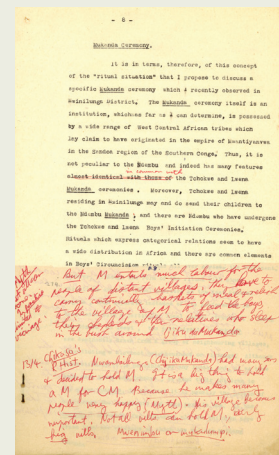 - 8 -
Mukanda Ceremony.
It is in terms, therefore, of this concept
of the "ritual situation" that I propose to discuss a
specific Mukanda ceremony which I recently observed in
Mwinilunga District. The Mukanda ceremony itself is an
institution, which as far as I can determine, is possessed
by a wide range of West Central African tribes which
lay claim to have originated in the empire of Mwantiyanvwa
in the Kasdan region of the Southern Congo. Thus, it is
not peculiar to the Ndembu and indeed has many features
in common with
almost identical with those of the Tchokwe and Lwena
Mukanda ceremonies. Moreover, Tchokwe and Lwena
residing in Mwinilunga may and do send their children to
the Ndembu Mukanda; and there are Ndembu who have undergone
the Tchokwe and Lwena Boys' Initiation Ceremonies.
Rituals which express categorical relations seem to have
a wide distribution in Africa and there are common elements
in Boys' Circumcision
But M entails much labour for the
people of distant villages, they have to
carry continually baskets of mush & relish
to the village of M, to feed the boys
their shepherds and the relatives who sleep
in the bush around
13/4 Chikasa's
P. Hist.
had many sons
& decided to hold M. It is a big thing to hold
a M for CM because he makes many
people very happy (Myth). His village becomes
important. Not all villages can hold M, only
big villages.